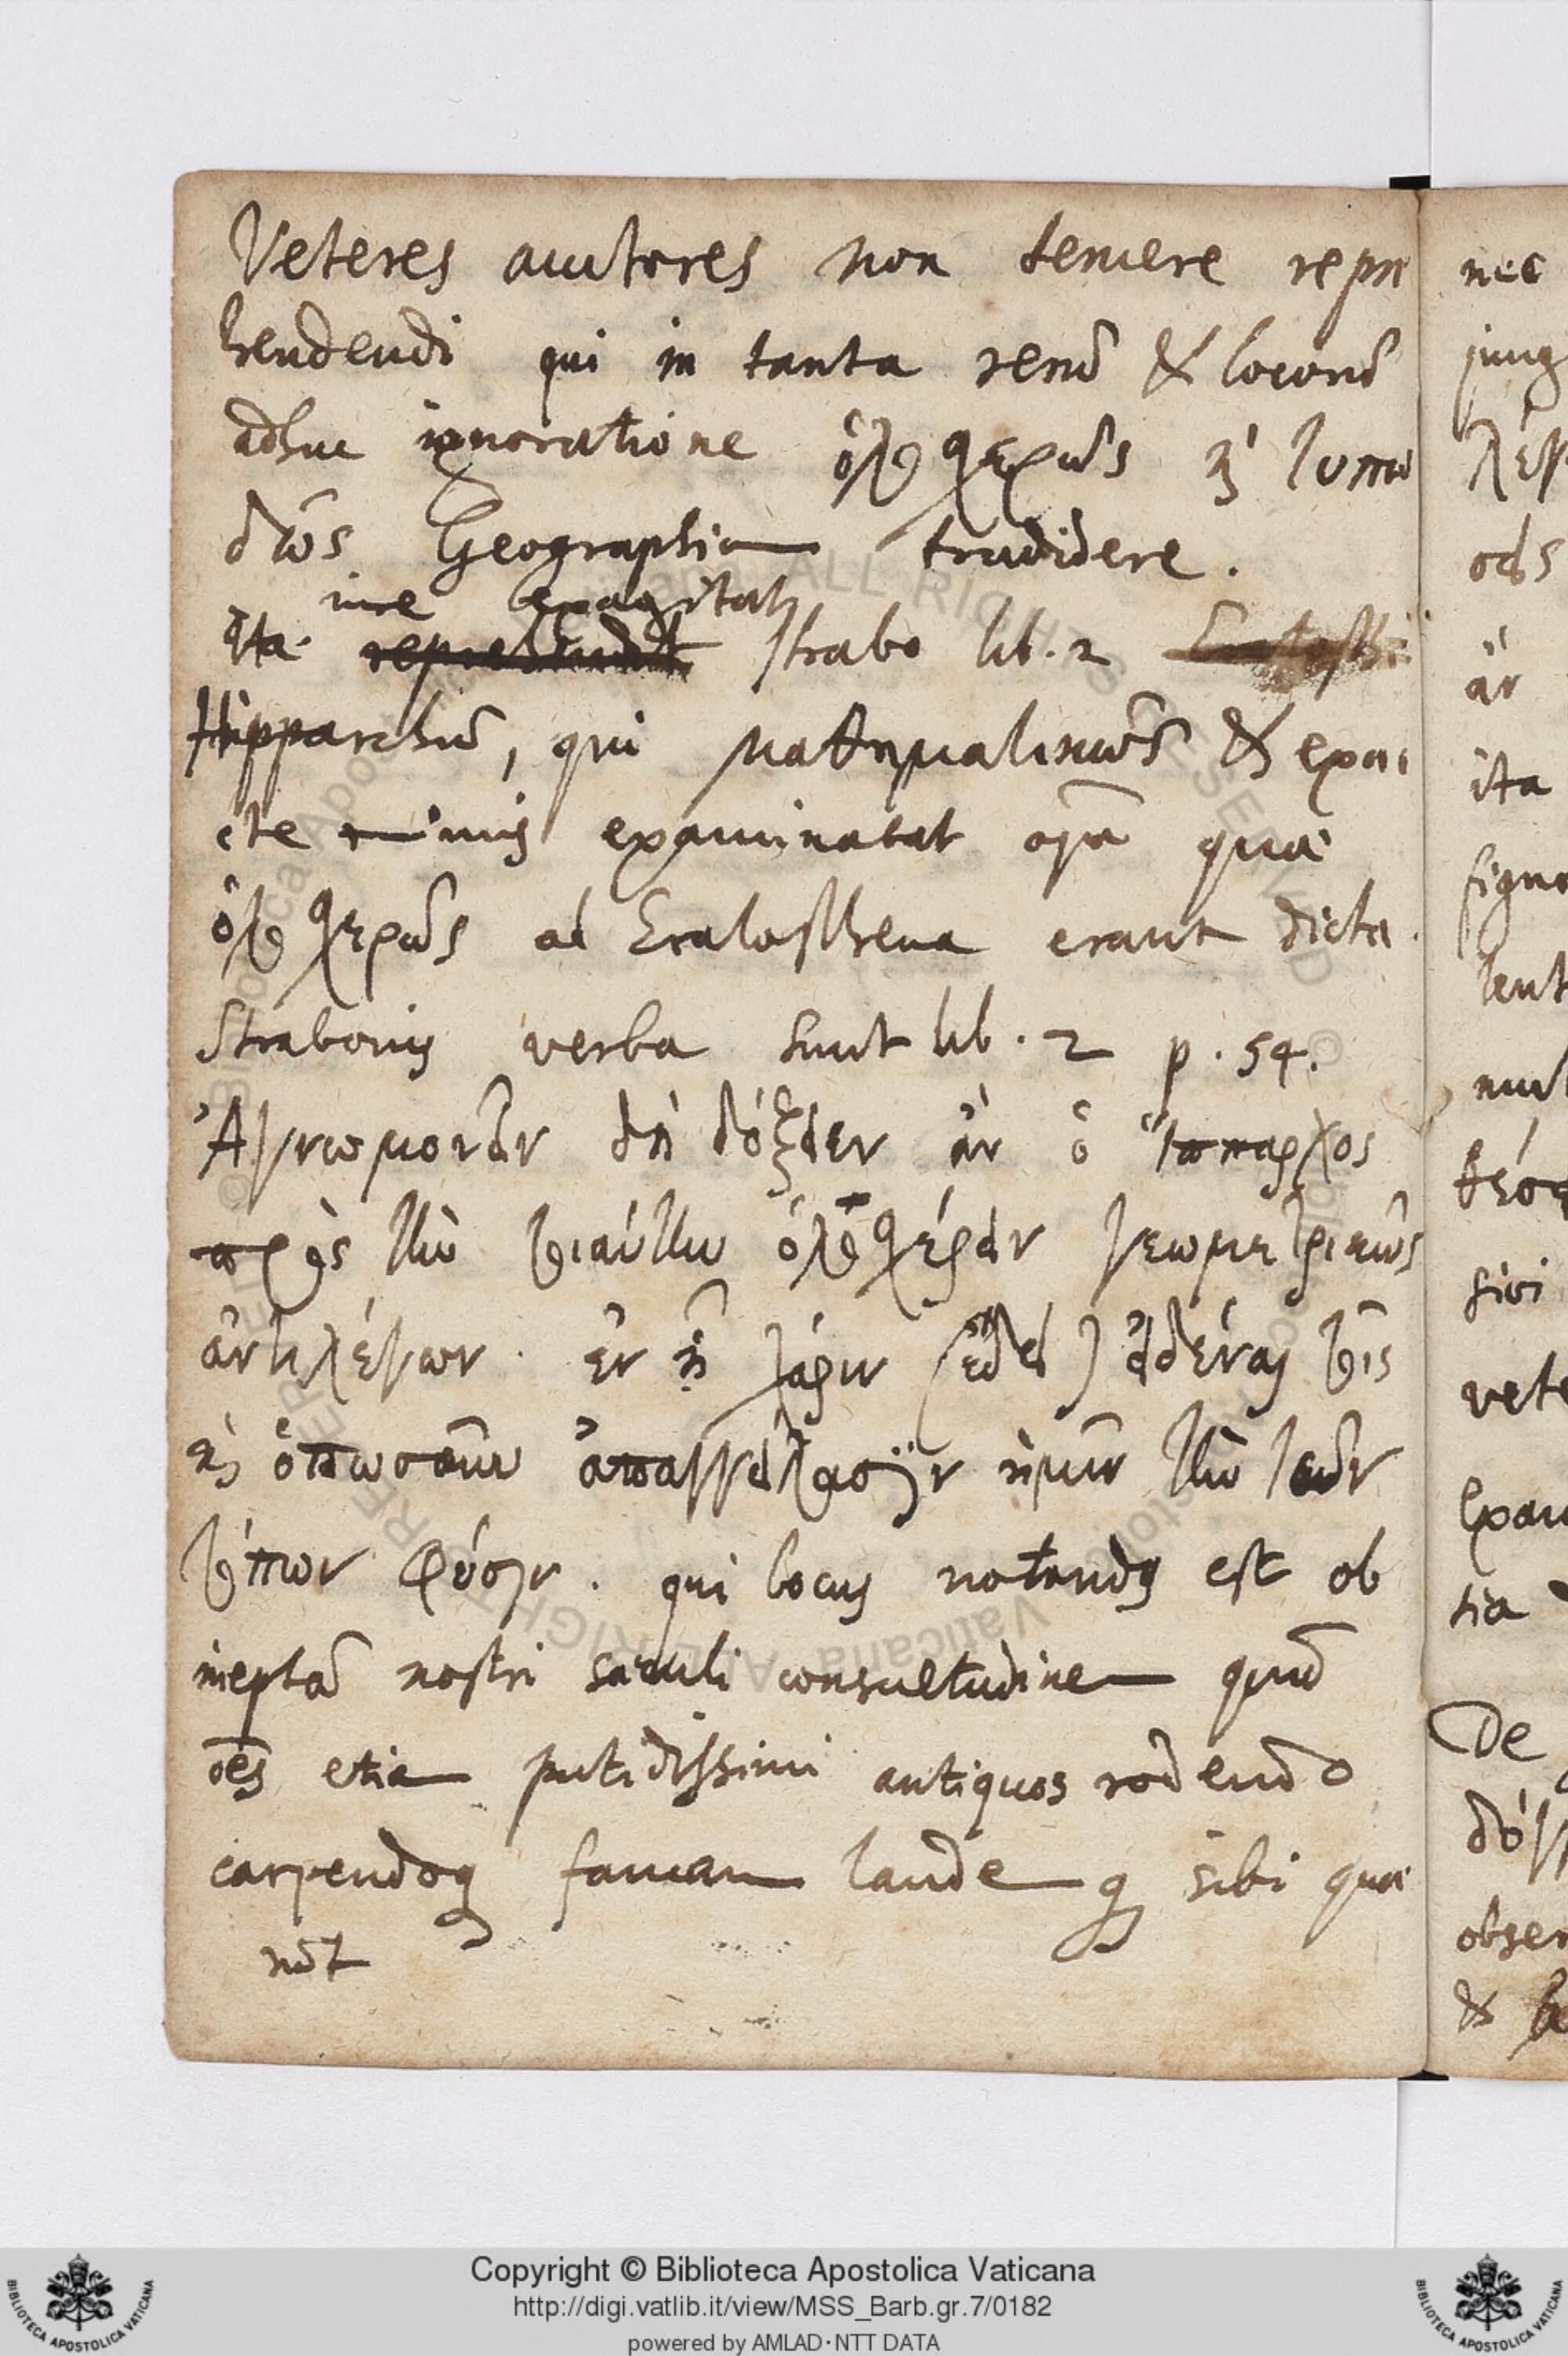 Veteres auctores non temere repre
hendendi qui in tanta rerū & locorū
adhuc ignoratione ὁλοσχερῶς κỳ τυπω
δῶς Geographiam tradidere.
iure exagitat
Ita reprehendit Strabo lib. 2 Eratosthe
Hipparchū, qui μαθηματικῶς & exa
cte nimis examinabat oīa quae
ὁλοσχερῶς ab Eratosthene erant dicta.
Strabonis verba sunt lib. 2 p. 54.
Ἀγνωμονεῖν δὴ δόξειεν ἂν ὁ Ἵππαρχος
πρὸς τὴν τοιαύτην ὁλοσχέρειαν γεωμετρικῶς
ἀντιλέγων. ἐν ᾗ χάριν (ἔδει) εἰδέναι τοῖς
κỳ ὁπωσοῦν ἀπαγγείλασιν ἡμῖν τὴν τῶν
τόπων φύσιν. qui locus notandus est ob
ineptā nostri saeculi consuetudinem quū
oēs etiam putidissimi antiquos rodendo
carpendoq famam laudemq sibi quae
runt
nec
jung
ods
ἂν
ita
signo
vete
exam
tia
De
obser
&
Copyright © Biblioteca Apostolica Vaticana
http://digi.vatlib.it/view/MSS_Barb.gr.7/0182
powered by AMLAD·NTT DATA
BIBLIOTECA APOSTOLICA VATICANA
BIBLIOTECA APOSTOLICA VATICANA